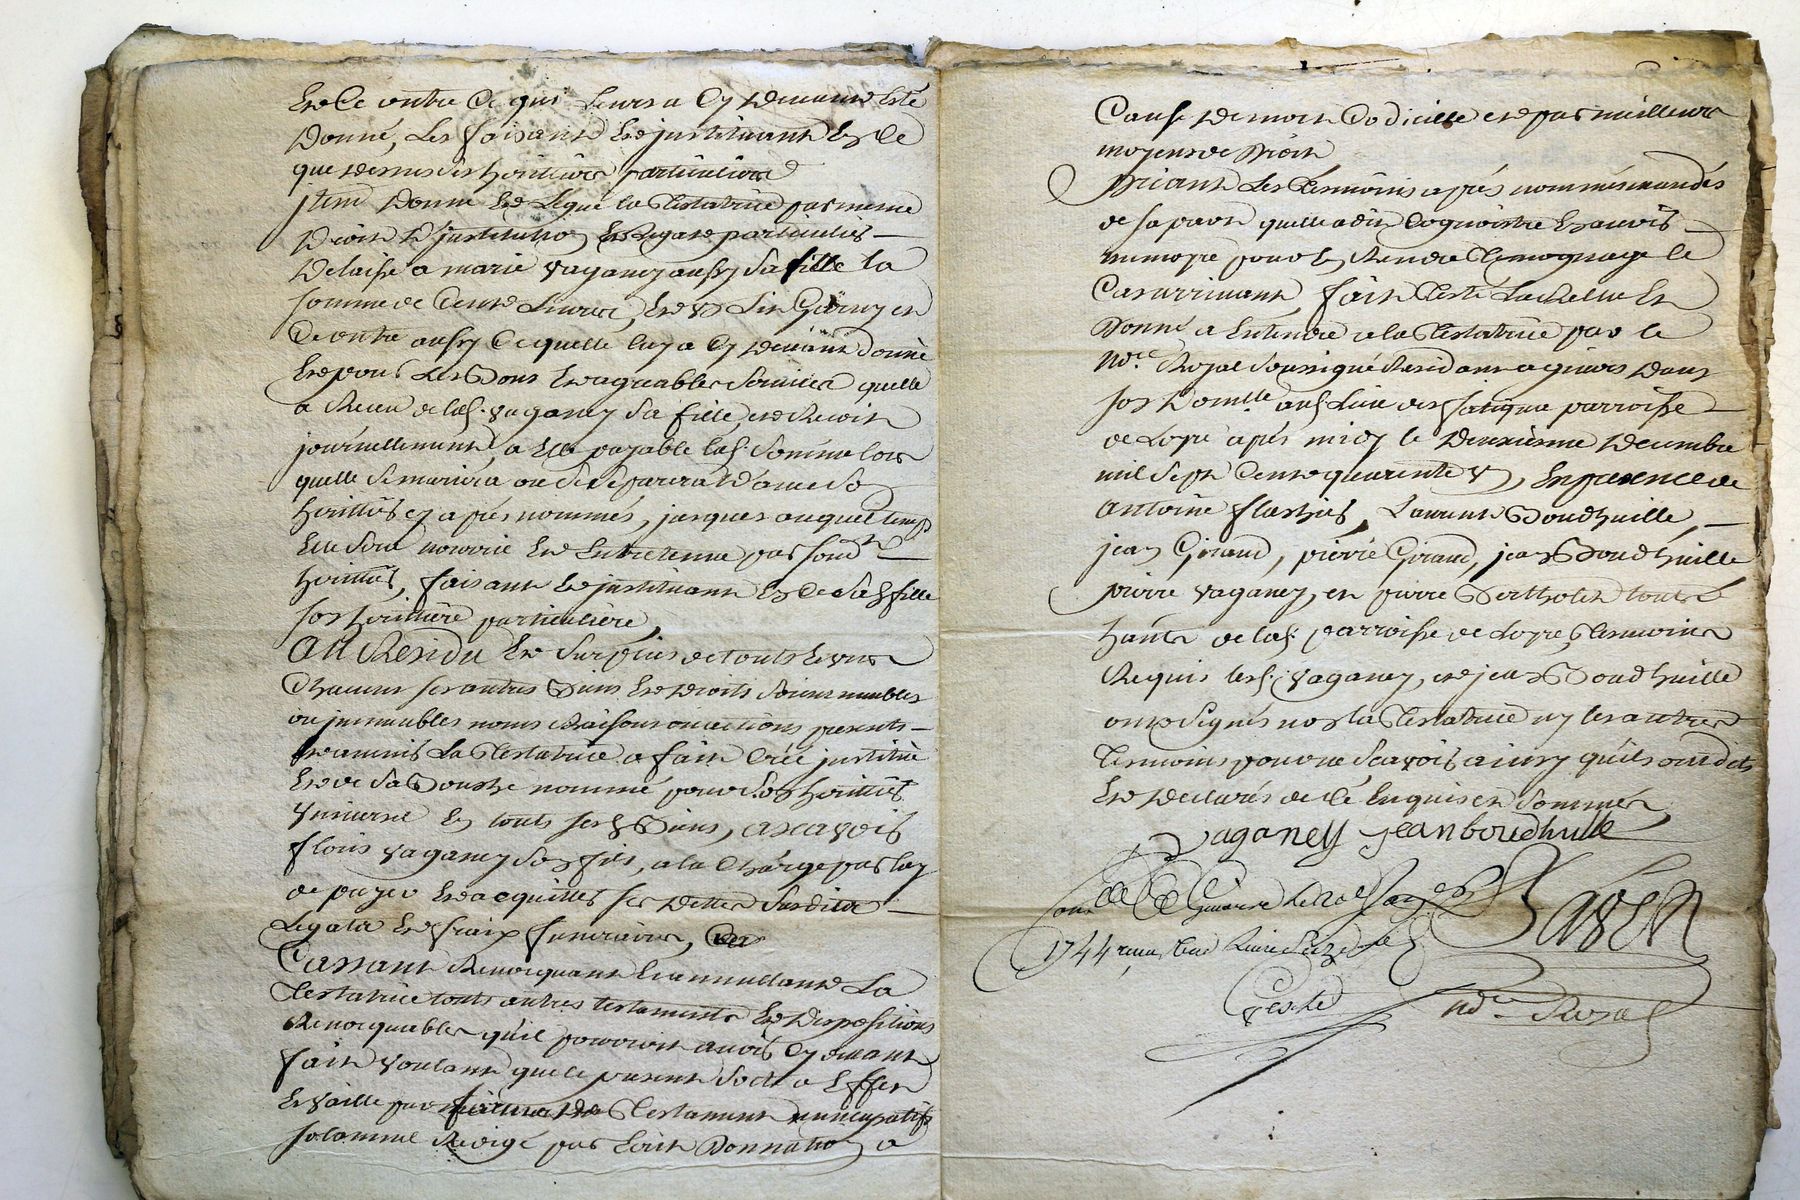 Et ce outre ce qui leurs a cy devant esté
donné, les faisant et instituant en ce
que dessus ses heritiers particuliers
jtem donne et legue la testatrice par meme
droit d'jnstitution et legat particulier
delaisse a marie vaganey aussy sa fille la
somme de cent livres, et
outre aussy ce quelle luy a cy devant donné
et pour les bons et agreables services quelle
a receu de lad. vaganey sa fille, et recoit
journellement, a elle payable lad. somme lors
quelle se mariera ou se separera d'avec son
heritier cy aprés nommés, jusques auquel temps
elle sera nourrie et entretenue par sond.
heritier, faisant et jnstituant en ce sad. fille
son heritiere particuliere,
Au Residu et surplus de touts et uns
chacuns ses autres biens et droits soient meubles
ou jmmeubles noms raisons ou actions presents
et avenir la testatrice a fait créé jnstitué
et de sa bouche nommé pour son heritier
universel en touts sesd. biens, ascavoir
flori vaganey son fils, a la charge par luy
de payer et acquitter ses dettes susdits
legats et fraix funeraires,
Cassant revocquant et annullant la
testatrice touts autres testaments et dispositions
revocquables qu'il pourroit avoir cy devant
fait voulant que le present sorte a effet
et vaille par forme de testament nuncupatif
solamnel redigé par écrit donnation a
cause de mort codicille et par meilleurs
moyens de droit
priant les témoins aprés nommés mandés
de sa part quelle a dit cognoistre et avoir
memoyre pour en rendre temognage le
cas arrivant, fait testé lu relu et
donné a entendre a la testatrice par le
nore. Royal soussigné residant a givors dans
son domlle. aud. lieu de parroisse
de Loyre aprés midy le deuxieme decembre
mil sept cent quarente , en presence de
antoine flachier, Laurent Boudhuille,
jean Giraud, pierre Giraud, jean Boudhuille
pierre vaganey, et pierre Bertholet touts
hants de lad. parroisse de Loyre temoins
requis lesd. vaganey, et jean Boudhuille
ont signés non la testatrice ny les autres
temoins pour ne scavoir ainsy qu'ils ont dits
et declarés de ce enquis et sommés
vaganey jean boudhuille
1744 reçu
nore. Royal